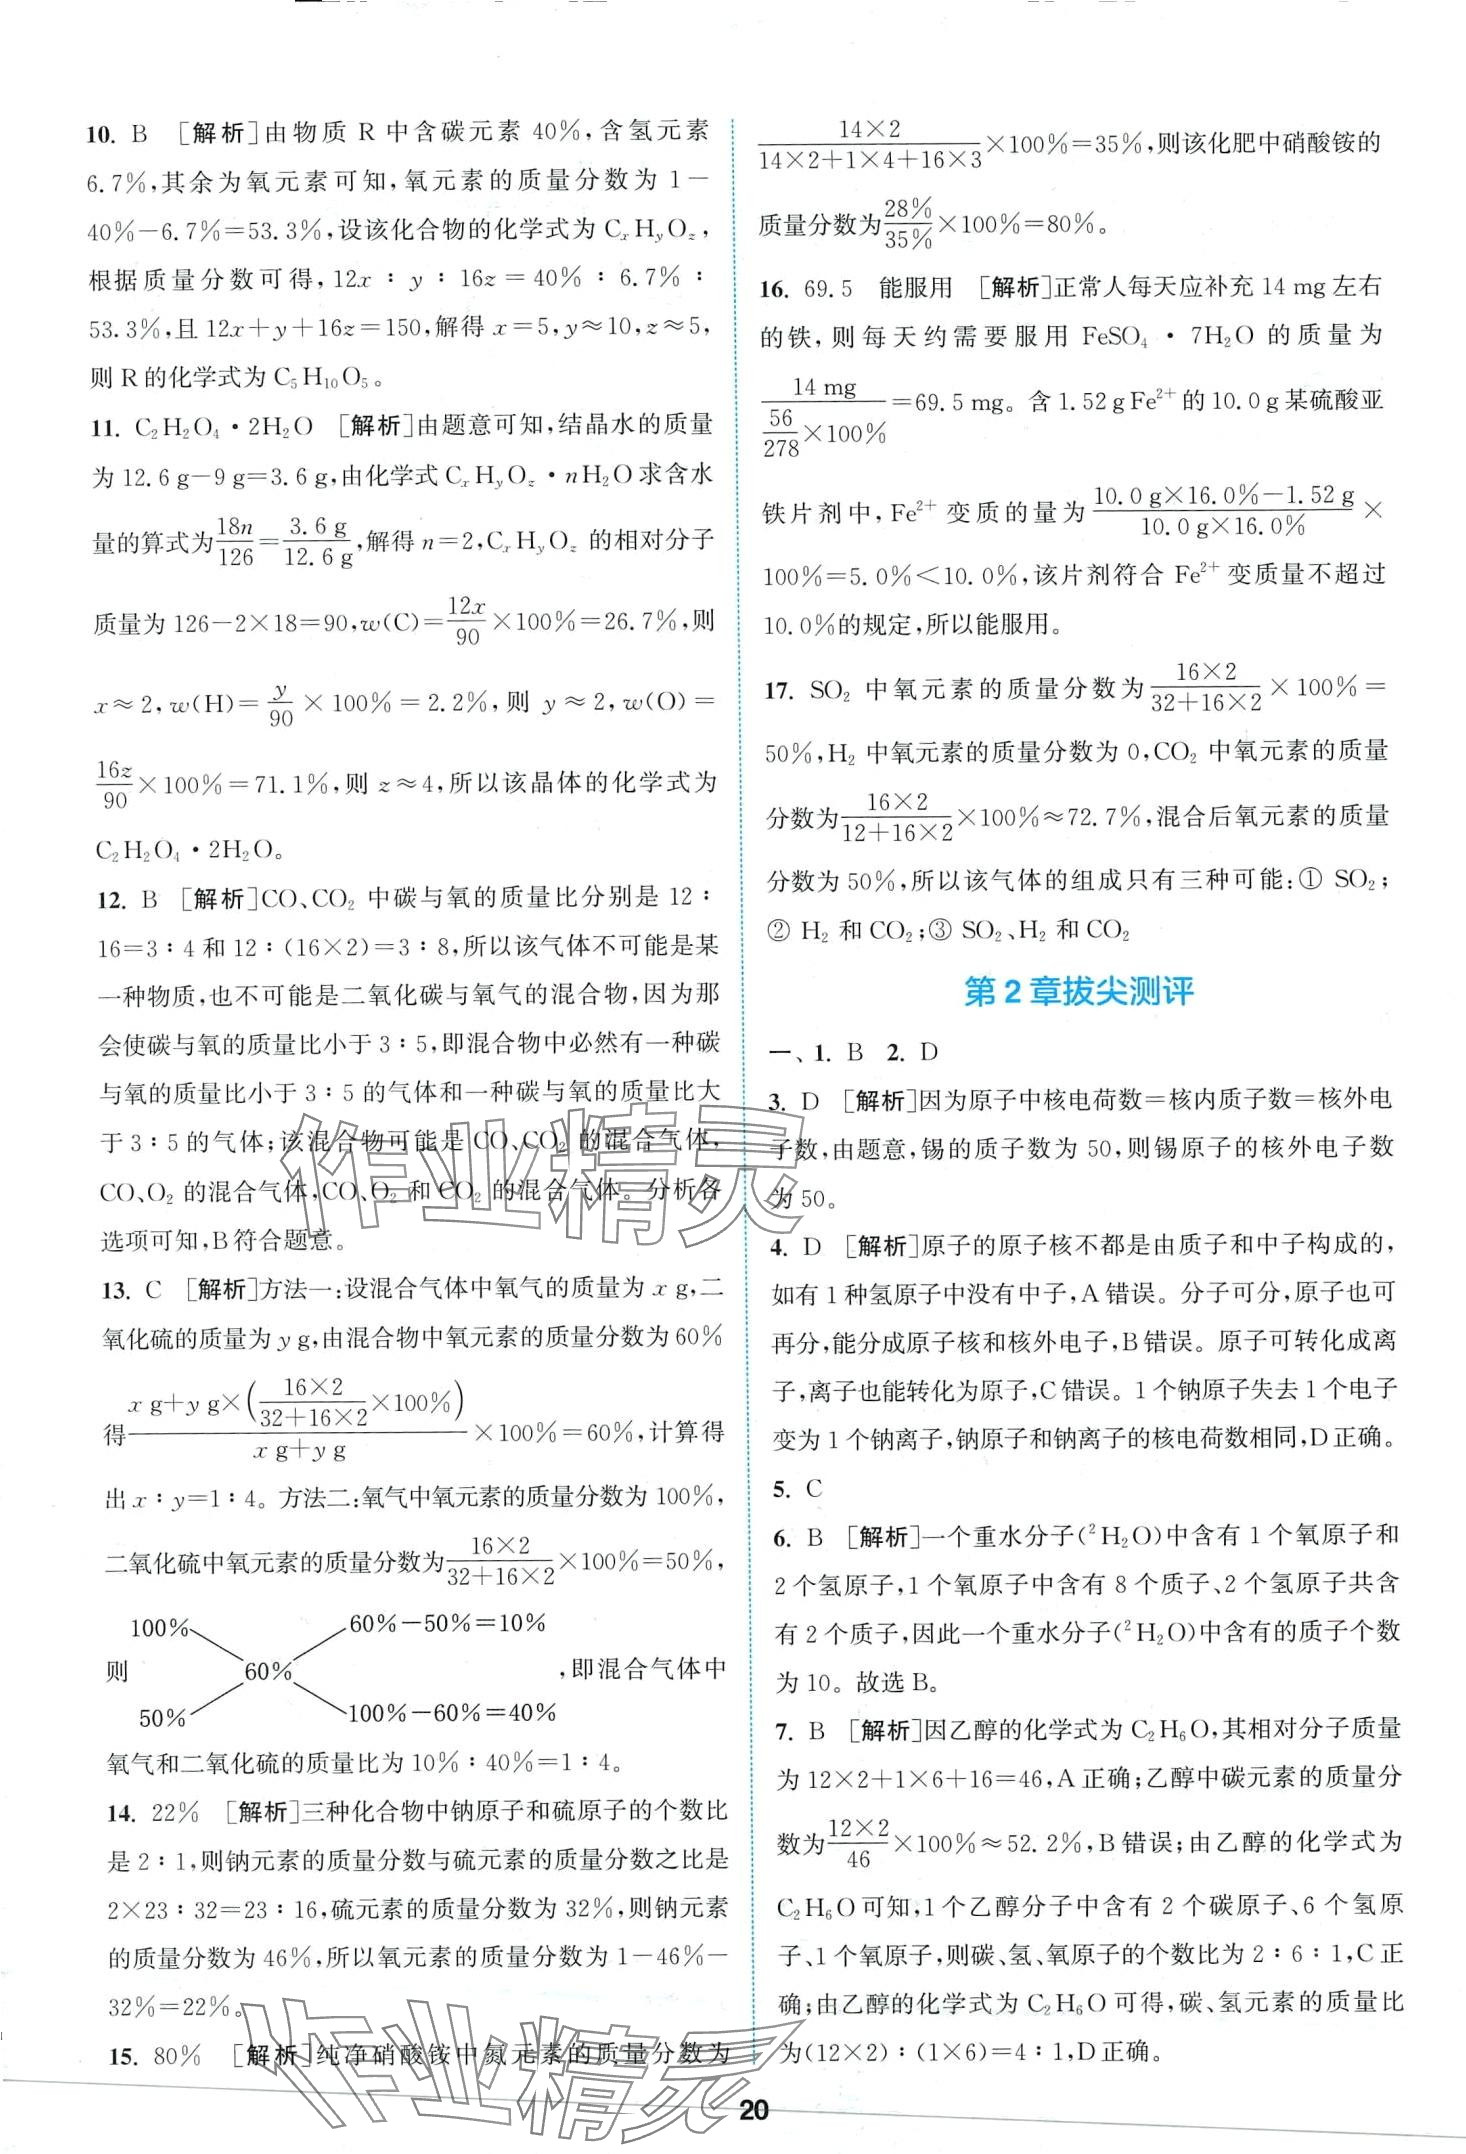 10. B [解析]由物质 R 中含碳元素 40%,含氢元素
6.7%,其余为氧元素可知,氧元素的质量分数为 1-
40%-6.7%=53.3%,设该化合物的化学式为 CₓHᵧO_z,
根据质量分数可得,12x∶y∶16z=40%∶6.7%∶
53.3%,且 12x+y+16z=150,解得 x=5,y≈10,z≈5,
则 R 的化学式为 C₅H₁₀O₅。
11. C₂H₂O₄·2H₂O [解析]由题意可知,结晶水的质量
为 12.6 g-9 g=3.6 g,由化学式 CₓHᵧO_z·nH₂O 求含水
量的算式为 18n/126=3.6 g/12.6 g,解得 n=2,CₓHᵧO_z 的相对分子
质量为 126-2×18=90,w(C)=12x/90×100%=26.7%,则
x≈2,w(H)=y/90×100%=2.2%,则 y≈2,w(O)=
16z/90×100%=71.1%,则 z≈4,所以该晶体的化学式为
C₂H₂O₄·2H₂O。
12. B [解析]CO、CO₂ 中碳与氧的质量比分别是 12∶
16=3∶4 和 12∶(16×2)=3∶8,所以该气体不可能是某
一种物质,也不可能是二氧化碳与氧气的混合物,因为那
会使碳与氧的质量比小于 3∶5,即混合物中必然有一种碳
与氧的质量比小于 3∶5 的气体和一种碳与氧的质量比大
于 3∶5 的气体;该混合物可能是 CO、CO₂ 的混合气体,
CO、O₂ 的混合气体,CO、O₂ 和 CO₂ 的混合气体。分析各
选项可知,B符合题意。
13. C [解析]方法一:设混合气体中氧气的质量为 x g,二
氧化硫的质量为 y g,由混合物中氧元素的质量分数为 60%
得 (x g+y g×(16×2/(32+16×2)×100%))/(x g+y g)×100%=60%,计算得
出 x∶y=1∶4。方法二:氧气中氧元素的质量分数为 100%,
二氧化硫中氧元素的质量分数为 16×2/(32+16×2)×100%=50%,
100% 60%-50%=10%
则 60% ,即混合气体中
50% 100%-60%=40%
氧气和二氧化硫的质量比为 10%∶40%=1∶4。
14. 22% [解析]三种化合物中钠原子和硫原子的个数比
是 2∶1,则钠元素的质量分数与硫元素的质量分数之比是
2×23∶32=23∶16,硫元素的质量分数为 32%,则钠元素
的质量分数为 46%,所以氧元素的质量分数为 1-46%-
32%=22%。
15. 80% [解析]纯净硝酸铵中氮元素的质量分数为
14×2/(14×2+1×4+16×3)×100%=35%,则该化肥中硝酸铵的
质量分数为 28%/35%×100%=80%。
16. 69.5 能服用 [解析]正常人每天应补充 14 mg 左右
的铁,则每天约需要服用 FeSO₄·7H₂O 的质量为
14 mg/(56/278×100%)=69.5 mg。含 1.52 g Fe²⁺ 的 10.0 g 某硫酸亚
铁片剂中,Fe²⁺ 变质的量为 (10.0 g×16.0%-1.52 g)/(10.0 g×16.0%)×
100%=5.0%<10.0%,该片剂符合 Fe²⁺ 变质量不超过
10.0%的规定,所以能服用。
17. SO₂ 中氧元素的质量分数为 16×2/(32+16×2)×100%=
50%,H₂ 中氧元素的质量分数为 0,CO₂ 中氧元素的质量
分数为 16×2/(12+16×2)×100%≈72.7%,混合后氧元素的质量
分数为 50%,所以该气体的组成只有三种可能:① SO₂;
② H₂ 和 CO₂;③ SO₂、H₂ 和 CO₂
第 2 章拔尖测评
一、1. B 2. D
3. D [解析]因为原子中核电荷数=核内质子数=核外电
子数,由题意,锡的质子数为 50,则锡原子的核外电子数
为 50。
4. D [解析]原子的原子核不都是由质子和中子构成的,
如有 1 种氢原子中没有中子,A 错误。分子可分,原子也可
再分,能分成原子核和核外电子,B 错误。原子可转化成离
子,离子也能转化为原子,C 错误。1 个钠原子失去 1 个电子
变为 1 个钠离子,钠原子和钠离子的核电荷数相同,D 正确。
5. C
6. B [解析]一个重水分子(²H₂O)中含有 1 个氧原子和
2 个氢原子,1 个氧原子中含有 8 个质子、2 个氢原子共含
有 2 个质子,因此一个重水分子(²H₂O)中含有的质子个数
为 10。故选 B。
7. B [解析]因乙醇的化学式为 C₂H₆O,其相对分子质量
为 12×2+1×6+16=46,A 正确;乙醇中碳元素的质量分
数为 12×2/46×100%≈52.2%,B 错误;由乙醇的化学式为
C₂H₆O 可知,1 个乙醇分子中含有 2 个碳原子、6 个氢原
子、1 个氧原子,则碳、氢、氧原子的个数比为 2∶6∶1,C 正
确;由乙醇的化学式为 C₂H₆O 可得,碳、氢元素的质量比
为(12×2)∶(1×6)=4∶1,D 正确。
作业精灵
作业精灵
20